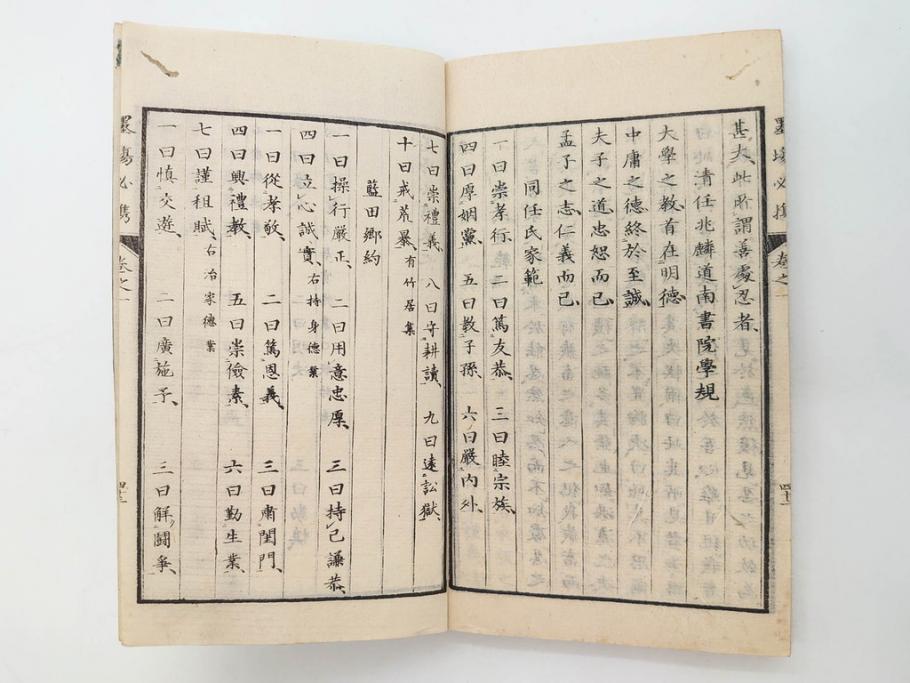 墨塲必攜 卷之一
甚大、此所謂善處忍者、
清任兆麟道南書院學規
大學之教首在明德
中庸之德終於至誠
夫子之道忠恕而已
孟子之志仁義而已
同任氏家範
一曰崇孝行、 二曰篤友恭、 三曰睦宗族、
四曰厚姻黨、 五曰教子孫、 六曰嚴内外、
七曰崇禮義、 八曰守耕讀、 九曰遠訟獄、
十曰戒荒暴、 有竹居集
藍田鄉約
一曰操行嚴正、 二曰用意忠厚、 三曰持己謙恭、
四曰立心誠實、 右持身德業
一曰從孝敬、 二曰篤恩義、 三曰肅閨門、
四曰興禮教、 五曰崇儉素、 六曰勤生業、
七曰謹租賦、 右治家德業
一曰慎交遊、 二曰廣施予、 三曰解鬪爭、
墨塲必攜 卷之一